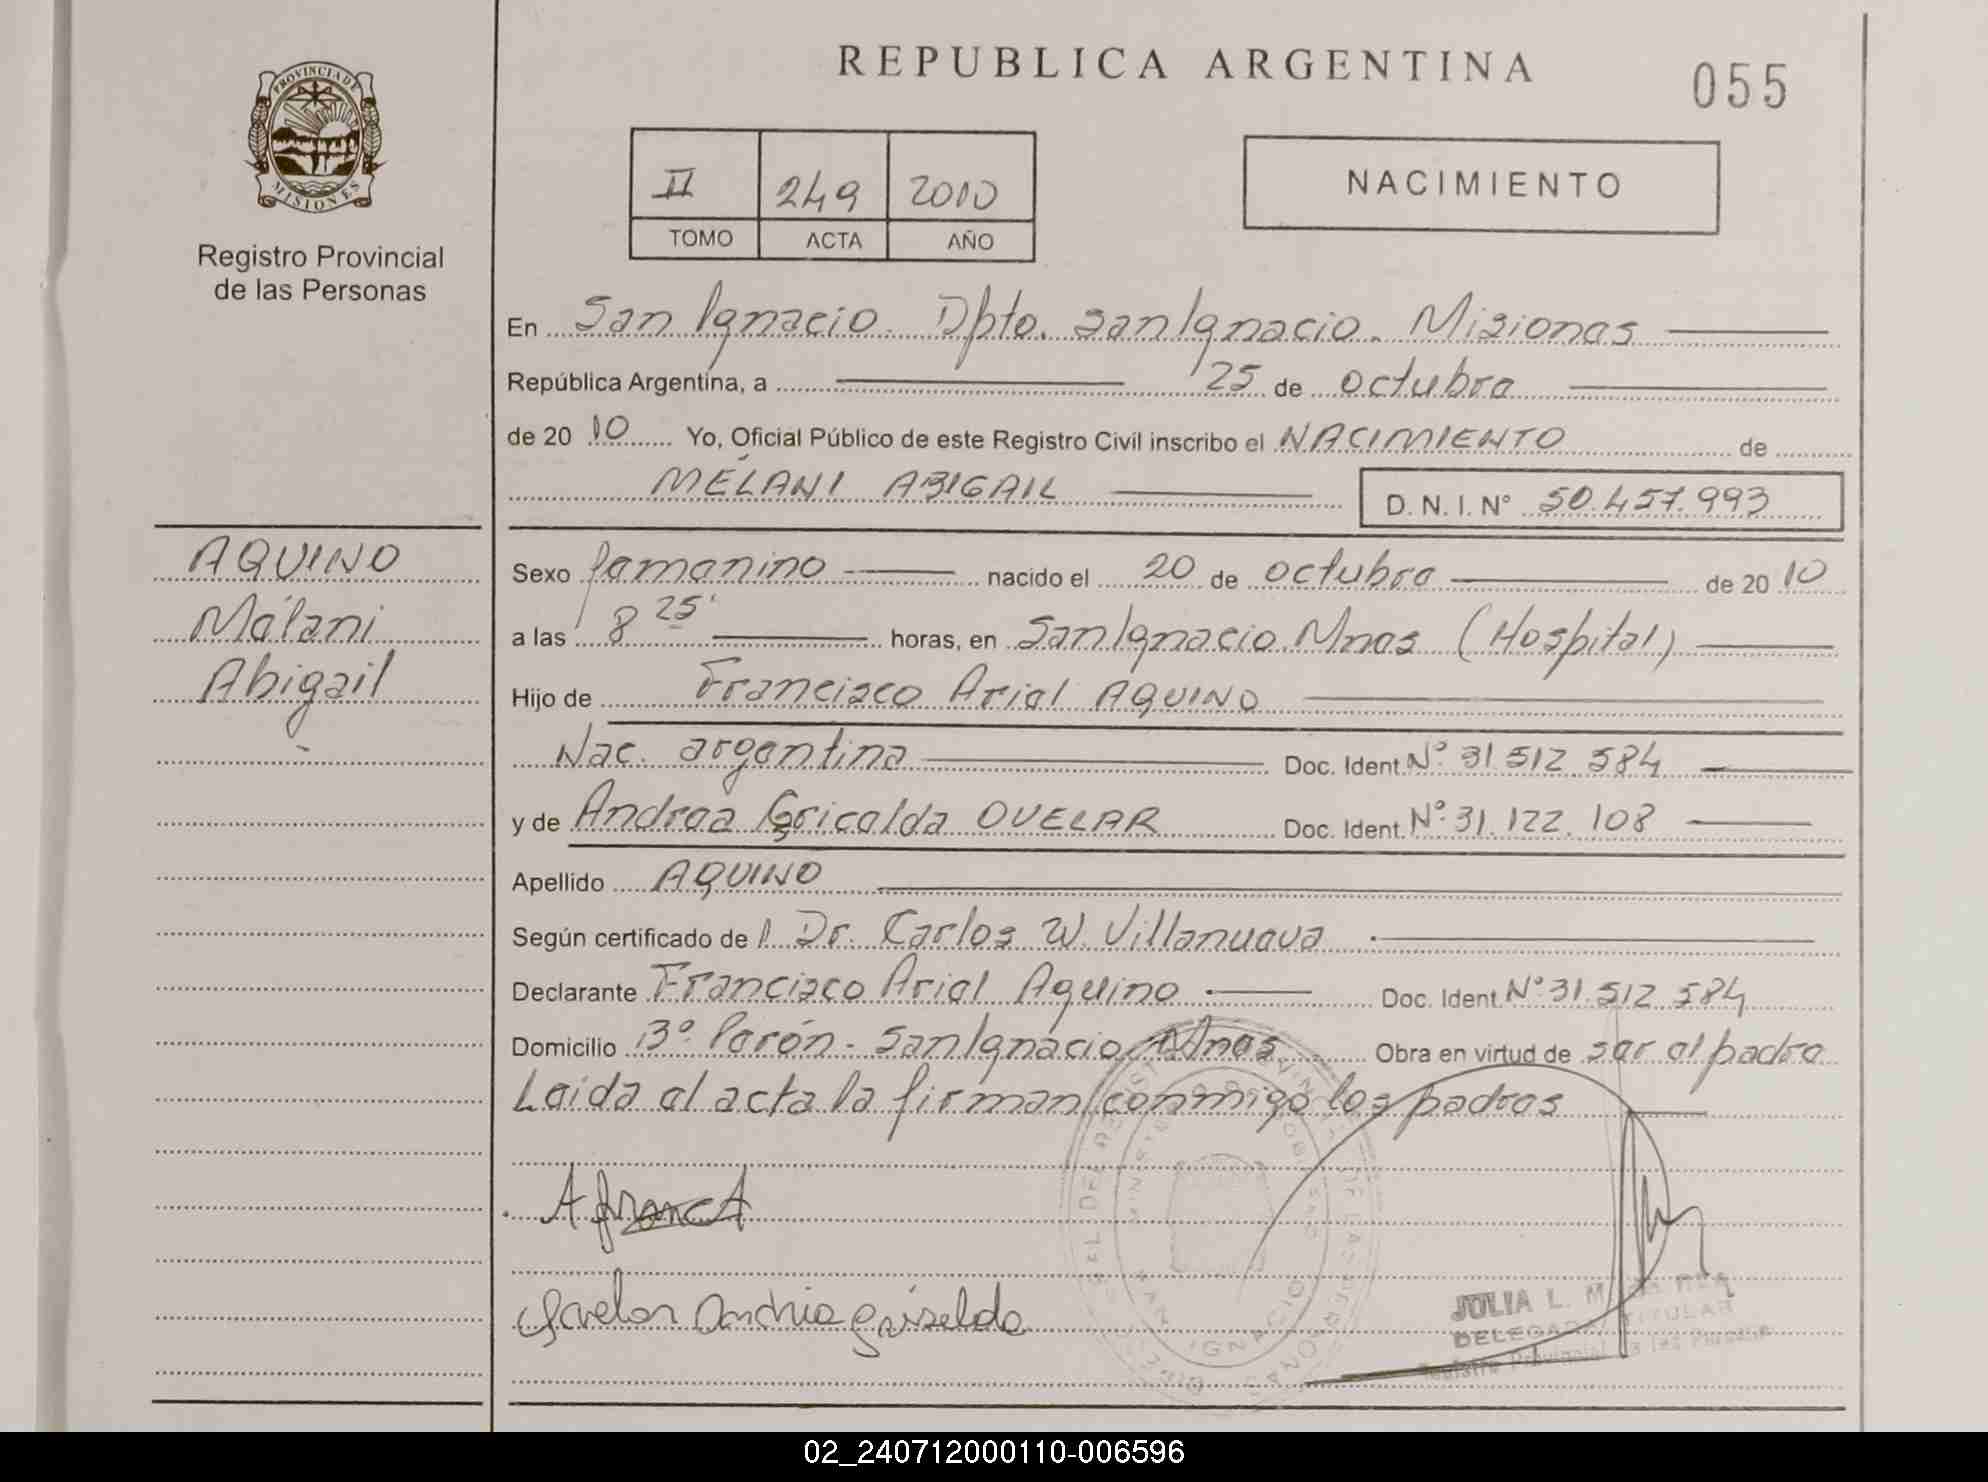 REPUBLICA ARGENTINA
055
PROVINCIA DE
MISIONES
Registro Provincial
de las Personas
II 249 2010
TOMO ACTA AÑO
NACIMIENTO
En San Ignacio. Dpto. San Ignacio. Misiones
República Argentina, a 25 de octubre
de 20 10 Yo, Oficial Público de este Registro Civil inscribo el NACIMIENTO de
MÉLANI ABIGAIL D. N. I. N° 50.457.993
AQUINO
Mélani
Abigail
Sexo femenino nacido el 20 de octubre de 20 10
a las 8 25' horas, en San Ignacio. Mnes (Hospital)
Hijo de Francisco Ariel AQUINO
Nac. argentina Doc. Ident. N° 31.512.584
y de Andrea Gricelda OVELAR Doc. Ident. N° 31.122.108
Apellido AQUINO
Según certificado del Dr. Carlos W. Villanueva
Declarante Francisco Ariel Aquino Doc. Ident. N° 31.512.584
Domicilio B° Perón - San Ignacio Mnes Obra en virtud de ser el padre
Leida el acta la firman conmigo los padres
Ovelar Andrea Griselda
SAN IGNACIO
JULIA L.
DELEGADA TITULAR
Registro Provincial de las Personas
02_240712000110-006596